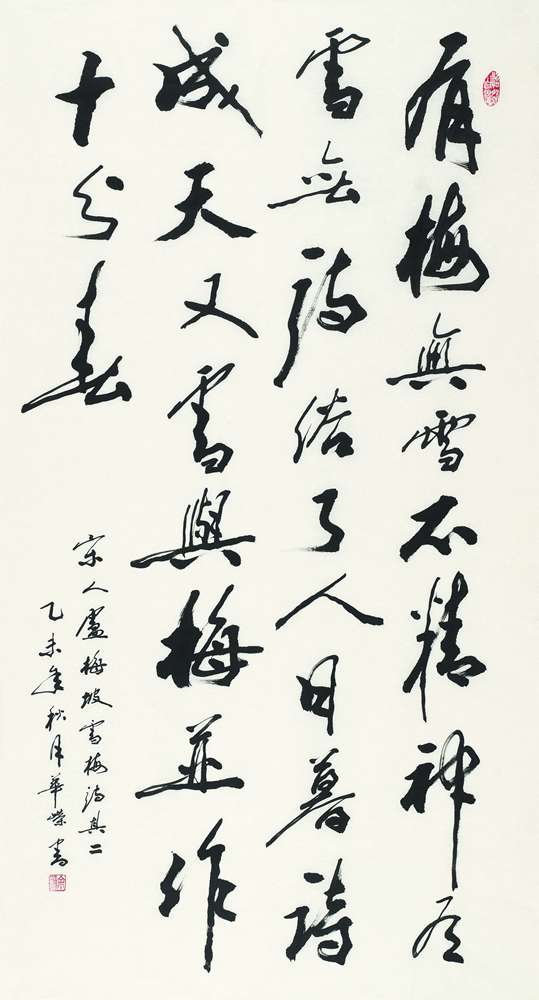 有梅無雪不精神有
雪無詩俗了人日暮詩
成天又雪與梅並作
十分春
宋人盧梅坡雪梅詩其二
乙未年秋月華榮書